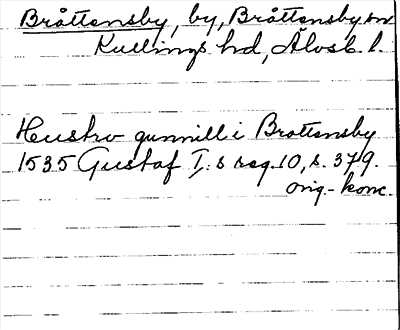 Bråttensby, by, Bråttensby sn
Kullings hd, Älvsb. l.
Hustro gunnill i Brottensby
1535 Gustaf I:s reg. 10, s. 379.
orig.-konc.